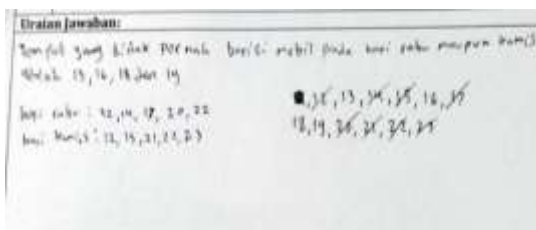 Uraian Jawaban:
Tempat yang tidak pernah berisi mobil pada hari rabu maupun kamis
adalah 13, 16, 18 dan 19
hari rabu : 12, 14, 17, 20, 22
hari kamis : 12, 15, 21, 22, 23
13, 16,
18, 19,